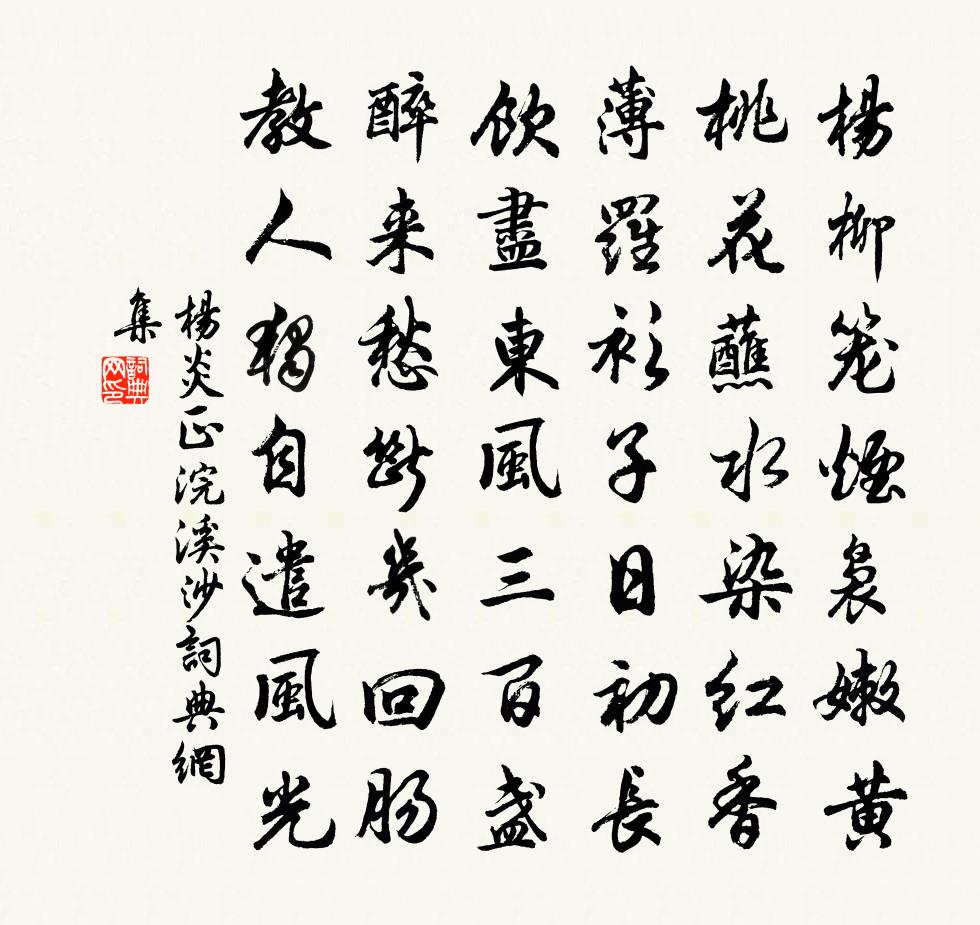 楊柳笼煙裊嫩黄
桃花蘸水染红香
薄羅衫子日初長
飲盡東風三百盏
醉来愁断幾回肠
教人獨自遣風光
楊炎正浣溪沙詞典網
集
詞典网印